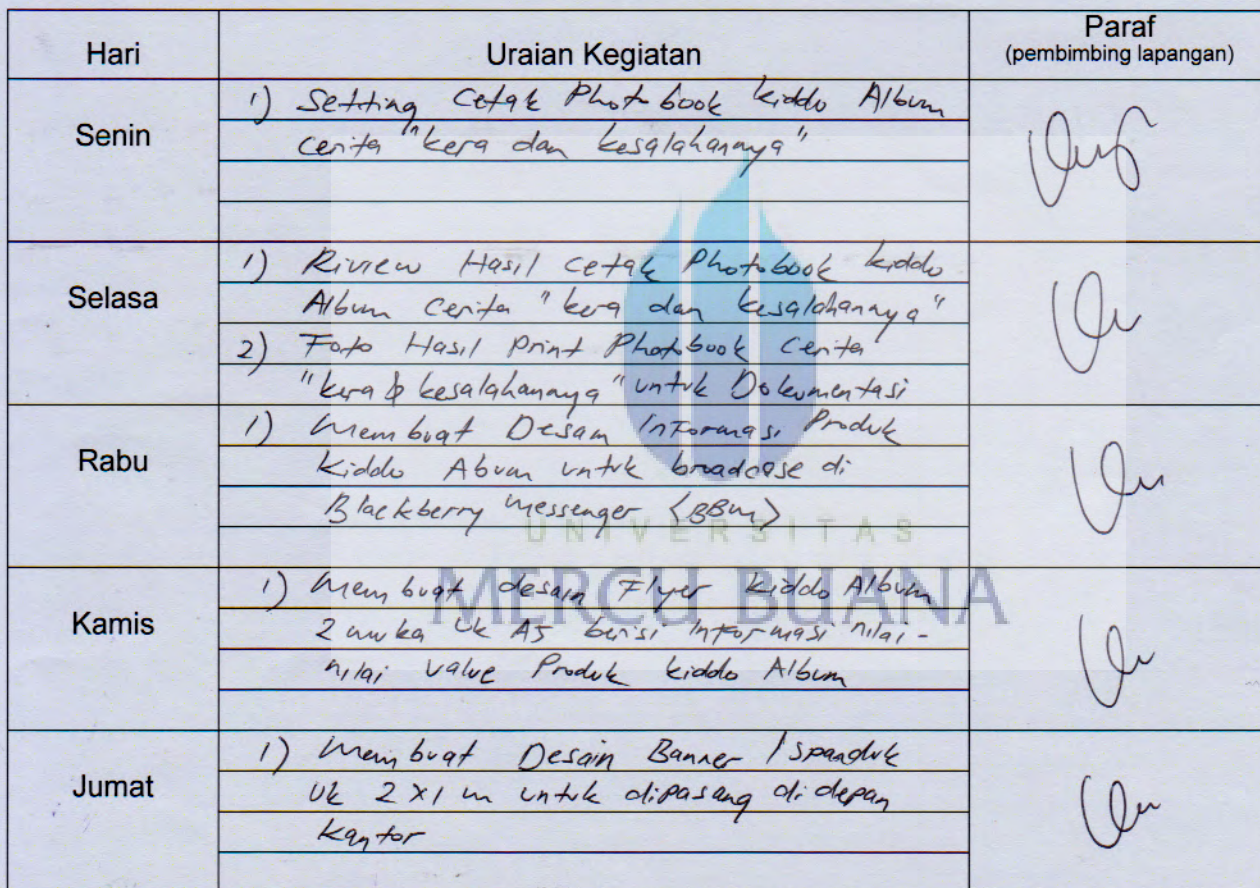 Hari Uraian Kegiatan Paraf
(pembimbing lapangan)
Senin
1) Setting Cetak Photobook kiddo Album
cerita "kera dan kesalahannya"
Selasa
1) Riview Hasil cetak Photobook kiddo
Album Cerita "kera dan kesalahannya"
2) Foto Hasil Print Photobook Cerita
"kera & kesalahannya" untuk Dokumentasi
Rabu
1) Membuat Desain Informasi Produk
Kiddo Abum untuk broadcase di
Blackberry Messenger (BBM)
UNIVERSITAS
MERCU BUANA
Kamis
1) Membuat desain Flyer kiddo Album
2 muka Uk A5 berisi Informasi nilai-
nilai value Produk kiddo Album
Jumat
1) Membuat Desain Banner / Spanduk
Uk 2 x 1 m untuk dipasang di depan
Kantor